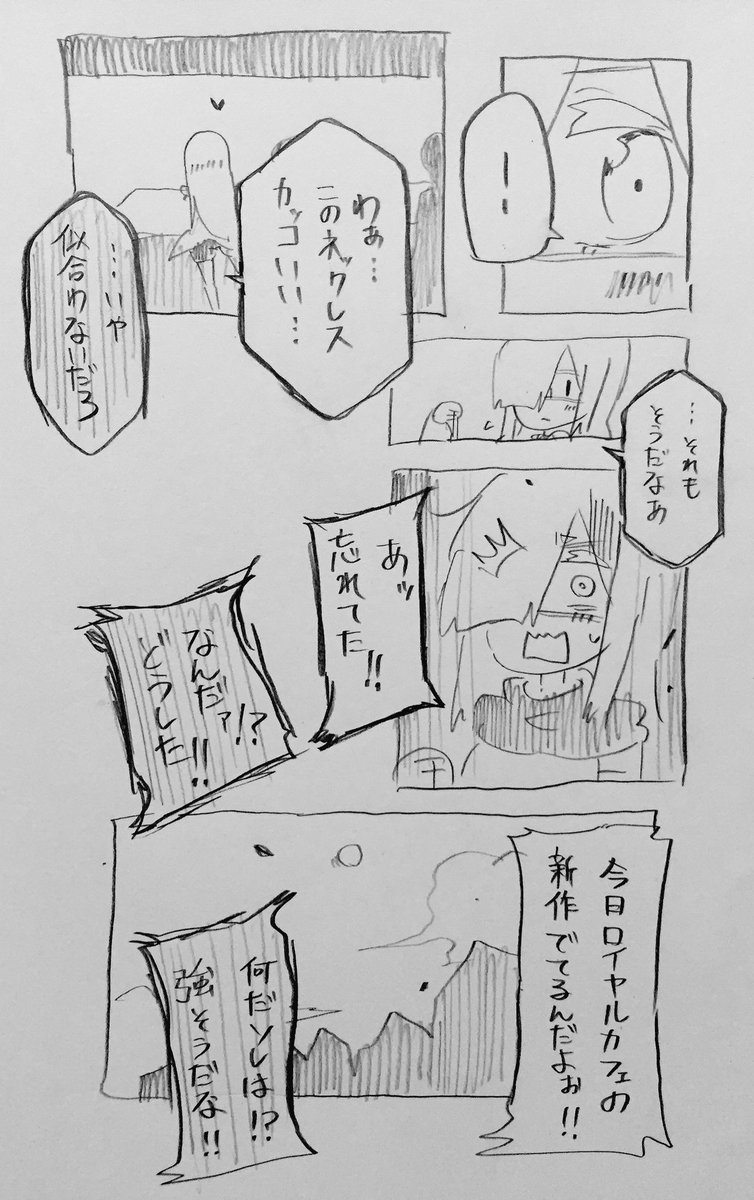 !!
わぁ…
このネックレス
カッコいい…
…いや
似合わないだろ
…それも
そうだなあ
あッ
忘れてた!!
なんだァ!?
どうした!!
今日ロイヤルカフェの
新作でてるんだよぉ!!
何だソレは!?
強そうだな!!